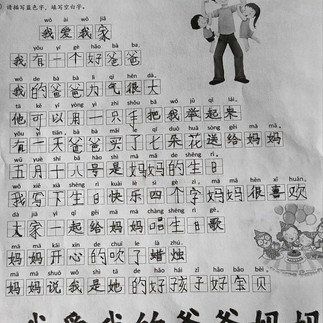 请描写蓝色字，填写空白字。
wǒ ài wǒ jiā
我爱我家
yǒu yí gè hǎo bà ba,
我有一个好爸爸
wǒ de bà bà lì qi hěn dà,
我的爸爸力气很大
tā kě yǐ yòng yì zhī shǒu bǎ wǒ jǔ qǐ lái,
他可以用一只手把我举起来
yǒu yì tiān, bà bà mǎi le qī duǒ huā sòng gěi mā mā,
有一天爸爸买了七朵花送给妈妈
wǔ yuè shí bā hào shì mā mā de shēng rì,
五月十八号是妈妈的生日
wǒ xiě xià shēng rì kuài lè sì gè zì mā mā hěn xǐ huān,
我写下生日快乐四个字妈妈很喜欢
dà jiā yì qǐ gěi mā mā chàng shēng rì gē,
大家一起给妈妈唱生日歌
mā mā kāi xīn de chuī le là zhú,
妈妈开心的吹了蜡烛
mā mā shuō wǒ shì tā de hǎo hái zǐ hǎo bǎo bèi.
妈妈说我是她的好孩子好宝贝
我爱我的爸爸妈妈